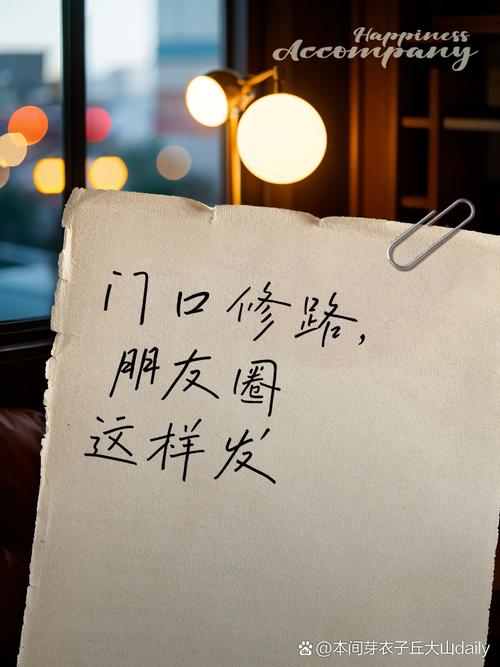 Happiness
Accompany
门口修路,
朋友圈
这样发
@本间芽衣子丘大山daily